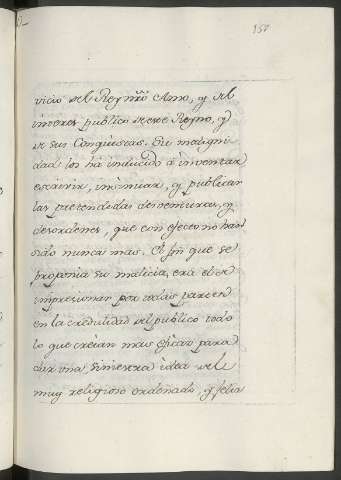 150
vicio del Rey nr̃o Amo, y del
interes publico de ese Reyno, y
de sus Conquistas. Su maligni
dad los há inducido à inventar
escrivir, insinuar, y publicar
las pretendidas desventuras, y
desordenes, que con efecto no han
sido nunca mas. El fin que se
proponia su malicia, era el de
impresionar por todas partes
en la credulidad del publico todo
lo que creian mas eficaz para
dar una, siniestra idea del
muy religioso ordenado, y feliz